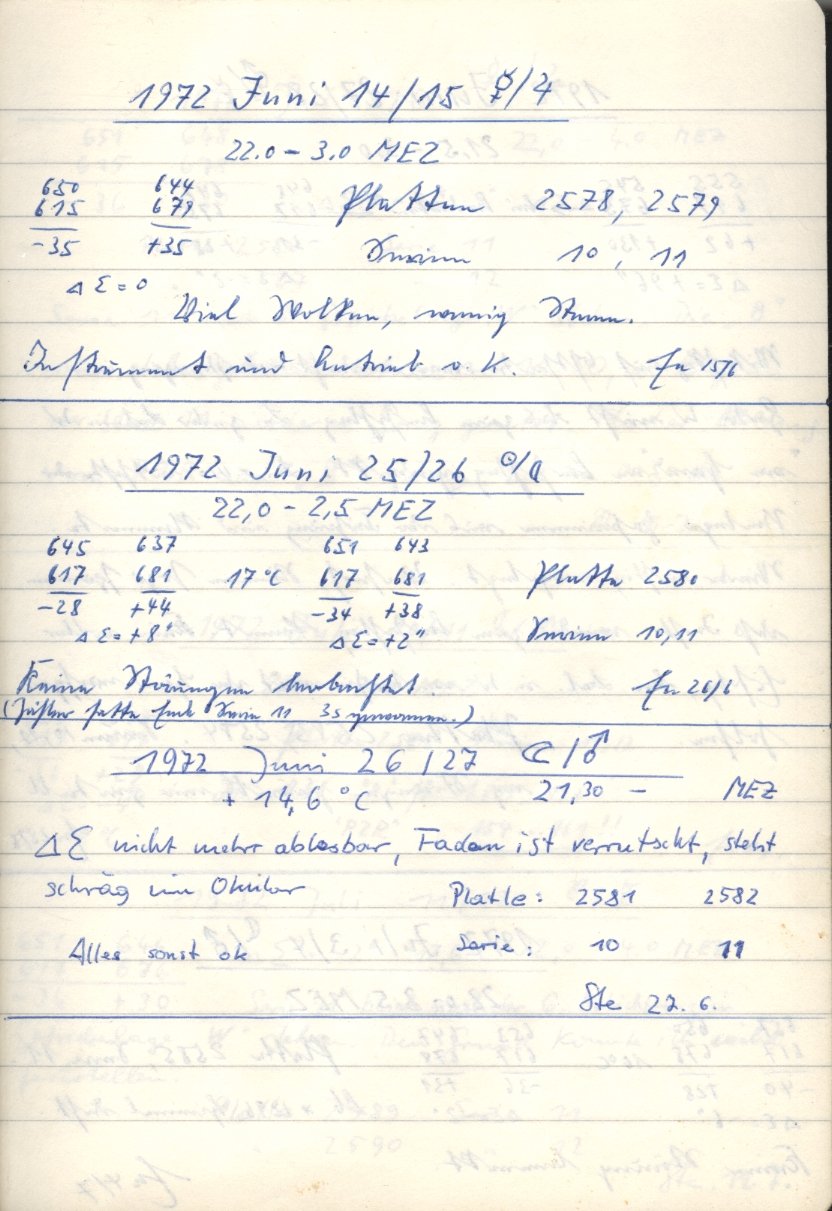 1972 Juni 14/15 ☿/♃
22.0 – 3.0 MEZ
650 644
615 679 Platten 2578, 2579
-35 +35 Serien 10, 11
Δ Σ = 0
Viel Wolken, wenig Sterne.
Instrument und Antrieb o. K. Fu 15/6
1972 Juni 25/26 ☉/☾
22,0 – 2,5 MEZ
645 637 651 643
617 681 17°C 617 681 Platte 2580
-28 +44 -34 +38
Δ Σ = +8" Δ Σ = +2" Serien 10,11
Keine Störungen beobachtet Fu 26/6
(Zähler hatte Ende Serie 11 3s gewonnen.)
1972 Juni 26/27 ☾/♂
+ 14,6 °C 21,30 – MEZ
Δ Σ nicht mehr ablesbar, Faden ist verrutscht, steht
schräg im Okular Platte: 2581 2582
Alles sonst ok Serie: 10 11
Ste 27. 6.